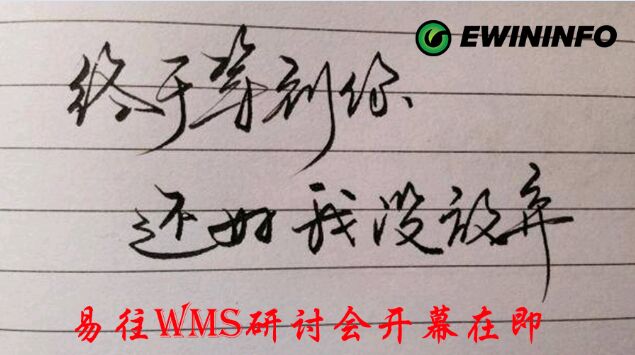 EWININFO
终于等到你、
还好我没放弃
易往WMS研讨会开幕在即